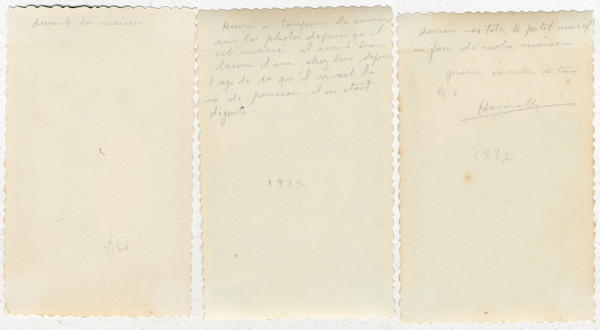 devant la maison
Henri a toujours le sourire
sur les photos depuis qu'il
est marié, il avait
besoin d'un chez lui, depuis
l'age de 10 qu'il vivait la
vie de pension, il en etait
dégouté
1937
derriere nos tetes le petit massif
en face de notre maison
grosse caresse de tous
les 2.
1937